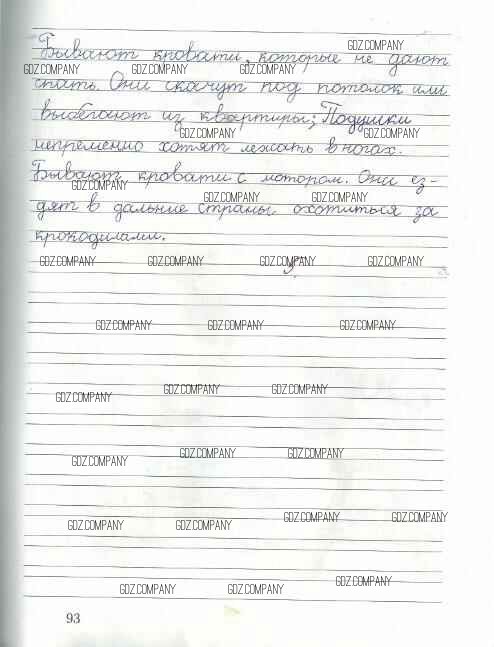 Бывают кровати, которые не дают
спать. Они скачут под потолок или
выбегают из квартиры; Подушки
непременно хотят лежать в ногах.
Бывают кровати с мотором. Они ез-
дят в дальние страны охотиться за
крокодилами.
GDZ.COMPANY
GDZ.COMPANY GDZ.COMPANY GDZ.COMPANY
GDZ.COMPANY GDZ.COMPANY
GDZ.COMPANY
GDZ.COMPANY GDZ.COMPANY
GDZ.COMPANY GDZ.COMPANY GDZ.COMPANY GDZ.COMPANY
GDZ.COMPANY GDZ.COMPANY GDZ.COMPANY
GDZ.COMPANY GDZ.COMPANY GDZ.COMPANY
GDZ.COMPANY GDZ.COMPANY GDZ.COMPANY
GDZ.COMPANY GDZ.COMPANY GDZ.COMPANY GDZ.COMPANY
GDZ.COMPANY GDZ.COMPANY GDZ.COMPANY
93